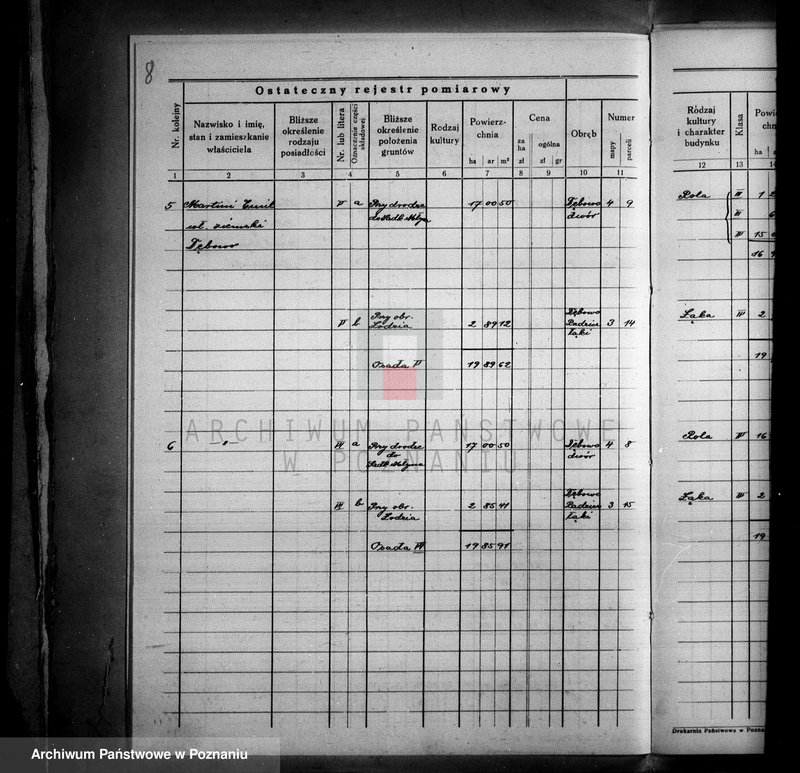 8
Ostateczny rejestr pomiarowy
Nr. kolejny
Nazwisko i imię,
stan i zamieszkanie
właściciela
Bliższe
określenie
rodzaju
posiadłości
Nr. lub litera
Oznaczenie części
składowej
Bliższe
określenie
położenia
gruntów
Rodzaj
kultury
Powierz-
chnia
ha ar m²
Cena
za
ha
zł
ogólna
zł gr
Obręb
Numer
mapy
parceli
1 2 3 4 5 6 7 8 9 10 11
5 Martini Emil V a Przy drodze 17 00 50 Dębowo 4 9
wł. ziemski dwór
Dębowo
V b Przy obr. 2 89 12 Dębowo 3 14
Łodzia
łąki
Osada V 19 89 62
6 -"- VI a Przy drodze 17 00 50 Dębowo 4 8
do dwór
VI b Przy obr. 2 85 41 Dębowo 3 15
Łodzia łąki
Osada VI 19 85 91
Rodzaj
kultury
i charakter
budynku
Klasa
Powie
chn
ha a
12 13 14
Rola III 1
15
16
Łąka IV 2
19
Rola IV 16
Łąka III 2
19
Drukarnia Państwowa w Pozna
ARCHIWUM PAŃSTWOWE
W POZNANIU
Archiwum Państwowe w Poznaniu